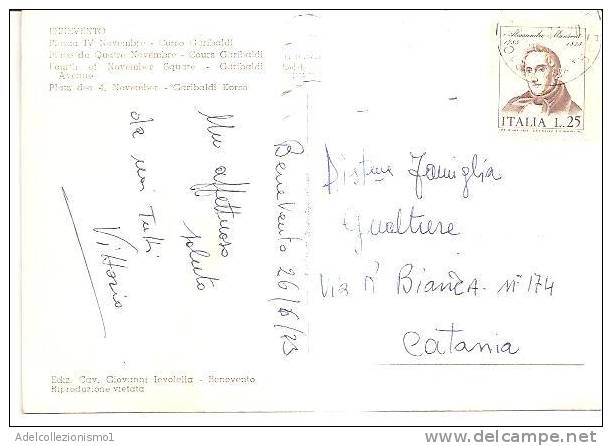 BENEVENTO
Piazza IV Novembre - Corso Garibaldi
Place du Quatre Novembre - Cours Garibaldi
Fourth of November Square - Garibaldi
Avenue
Platz des 4. November - Garibaldi Korso
Alessandro Manzoni
1785 1873
ITALIA L.25
Benevento 26/6/73
Un affettuoso
saluto
da noi tutti
Vittorio
Dist.ma Famiglia
Gualtiere
Via Bianca N° 174
Catania
Ediz. Cav. Giovanni Ievolella - Benevento
Riproduzione vietata
Adecollezionismo1
delcampe.net